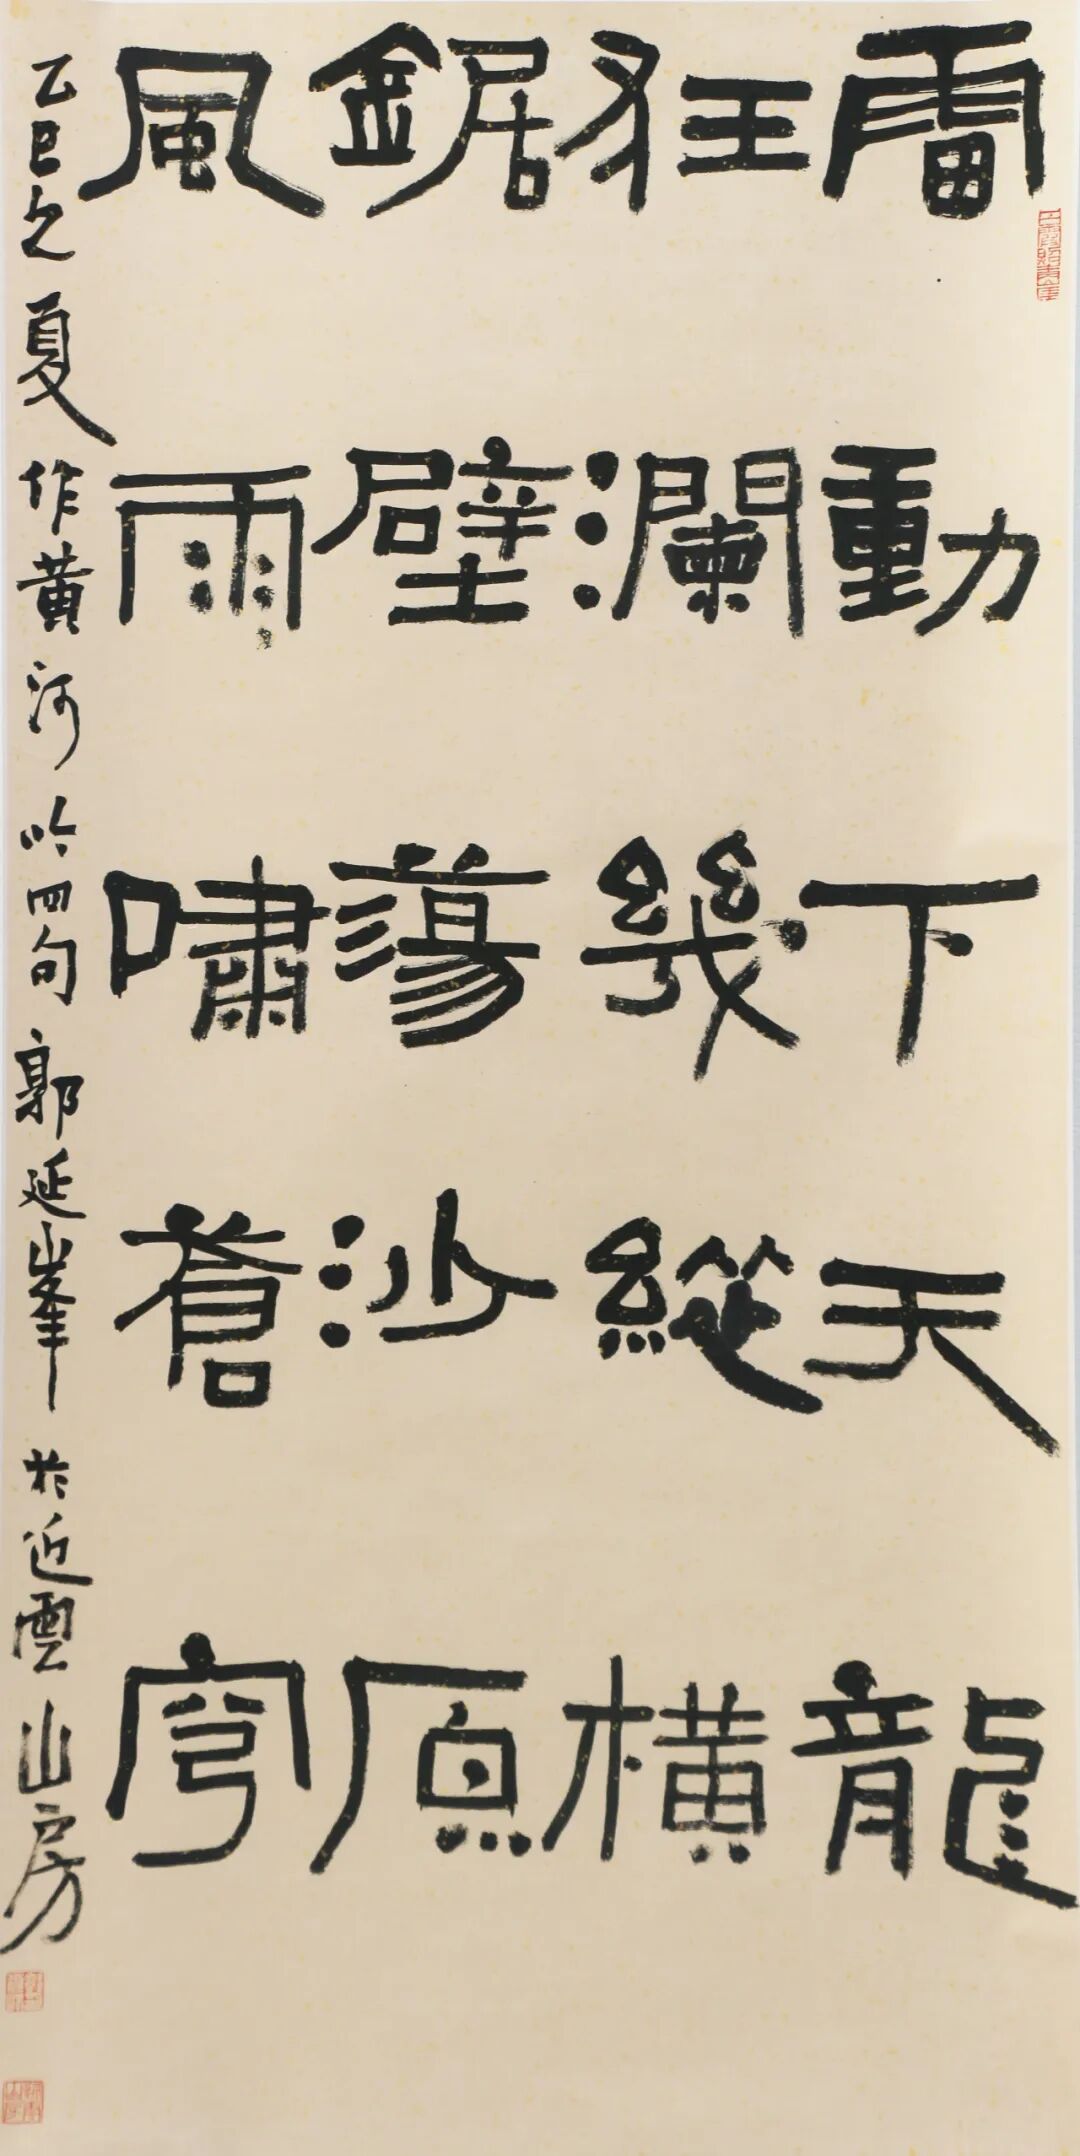 雷動下天龍
狂瀾幾縱橫
鋸壁蕩沙原
風雨嘯蒼穹
乙巳之夏作黃河吟四句郭延峯於近雲山房